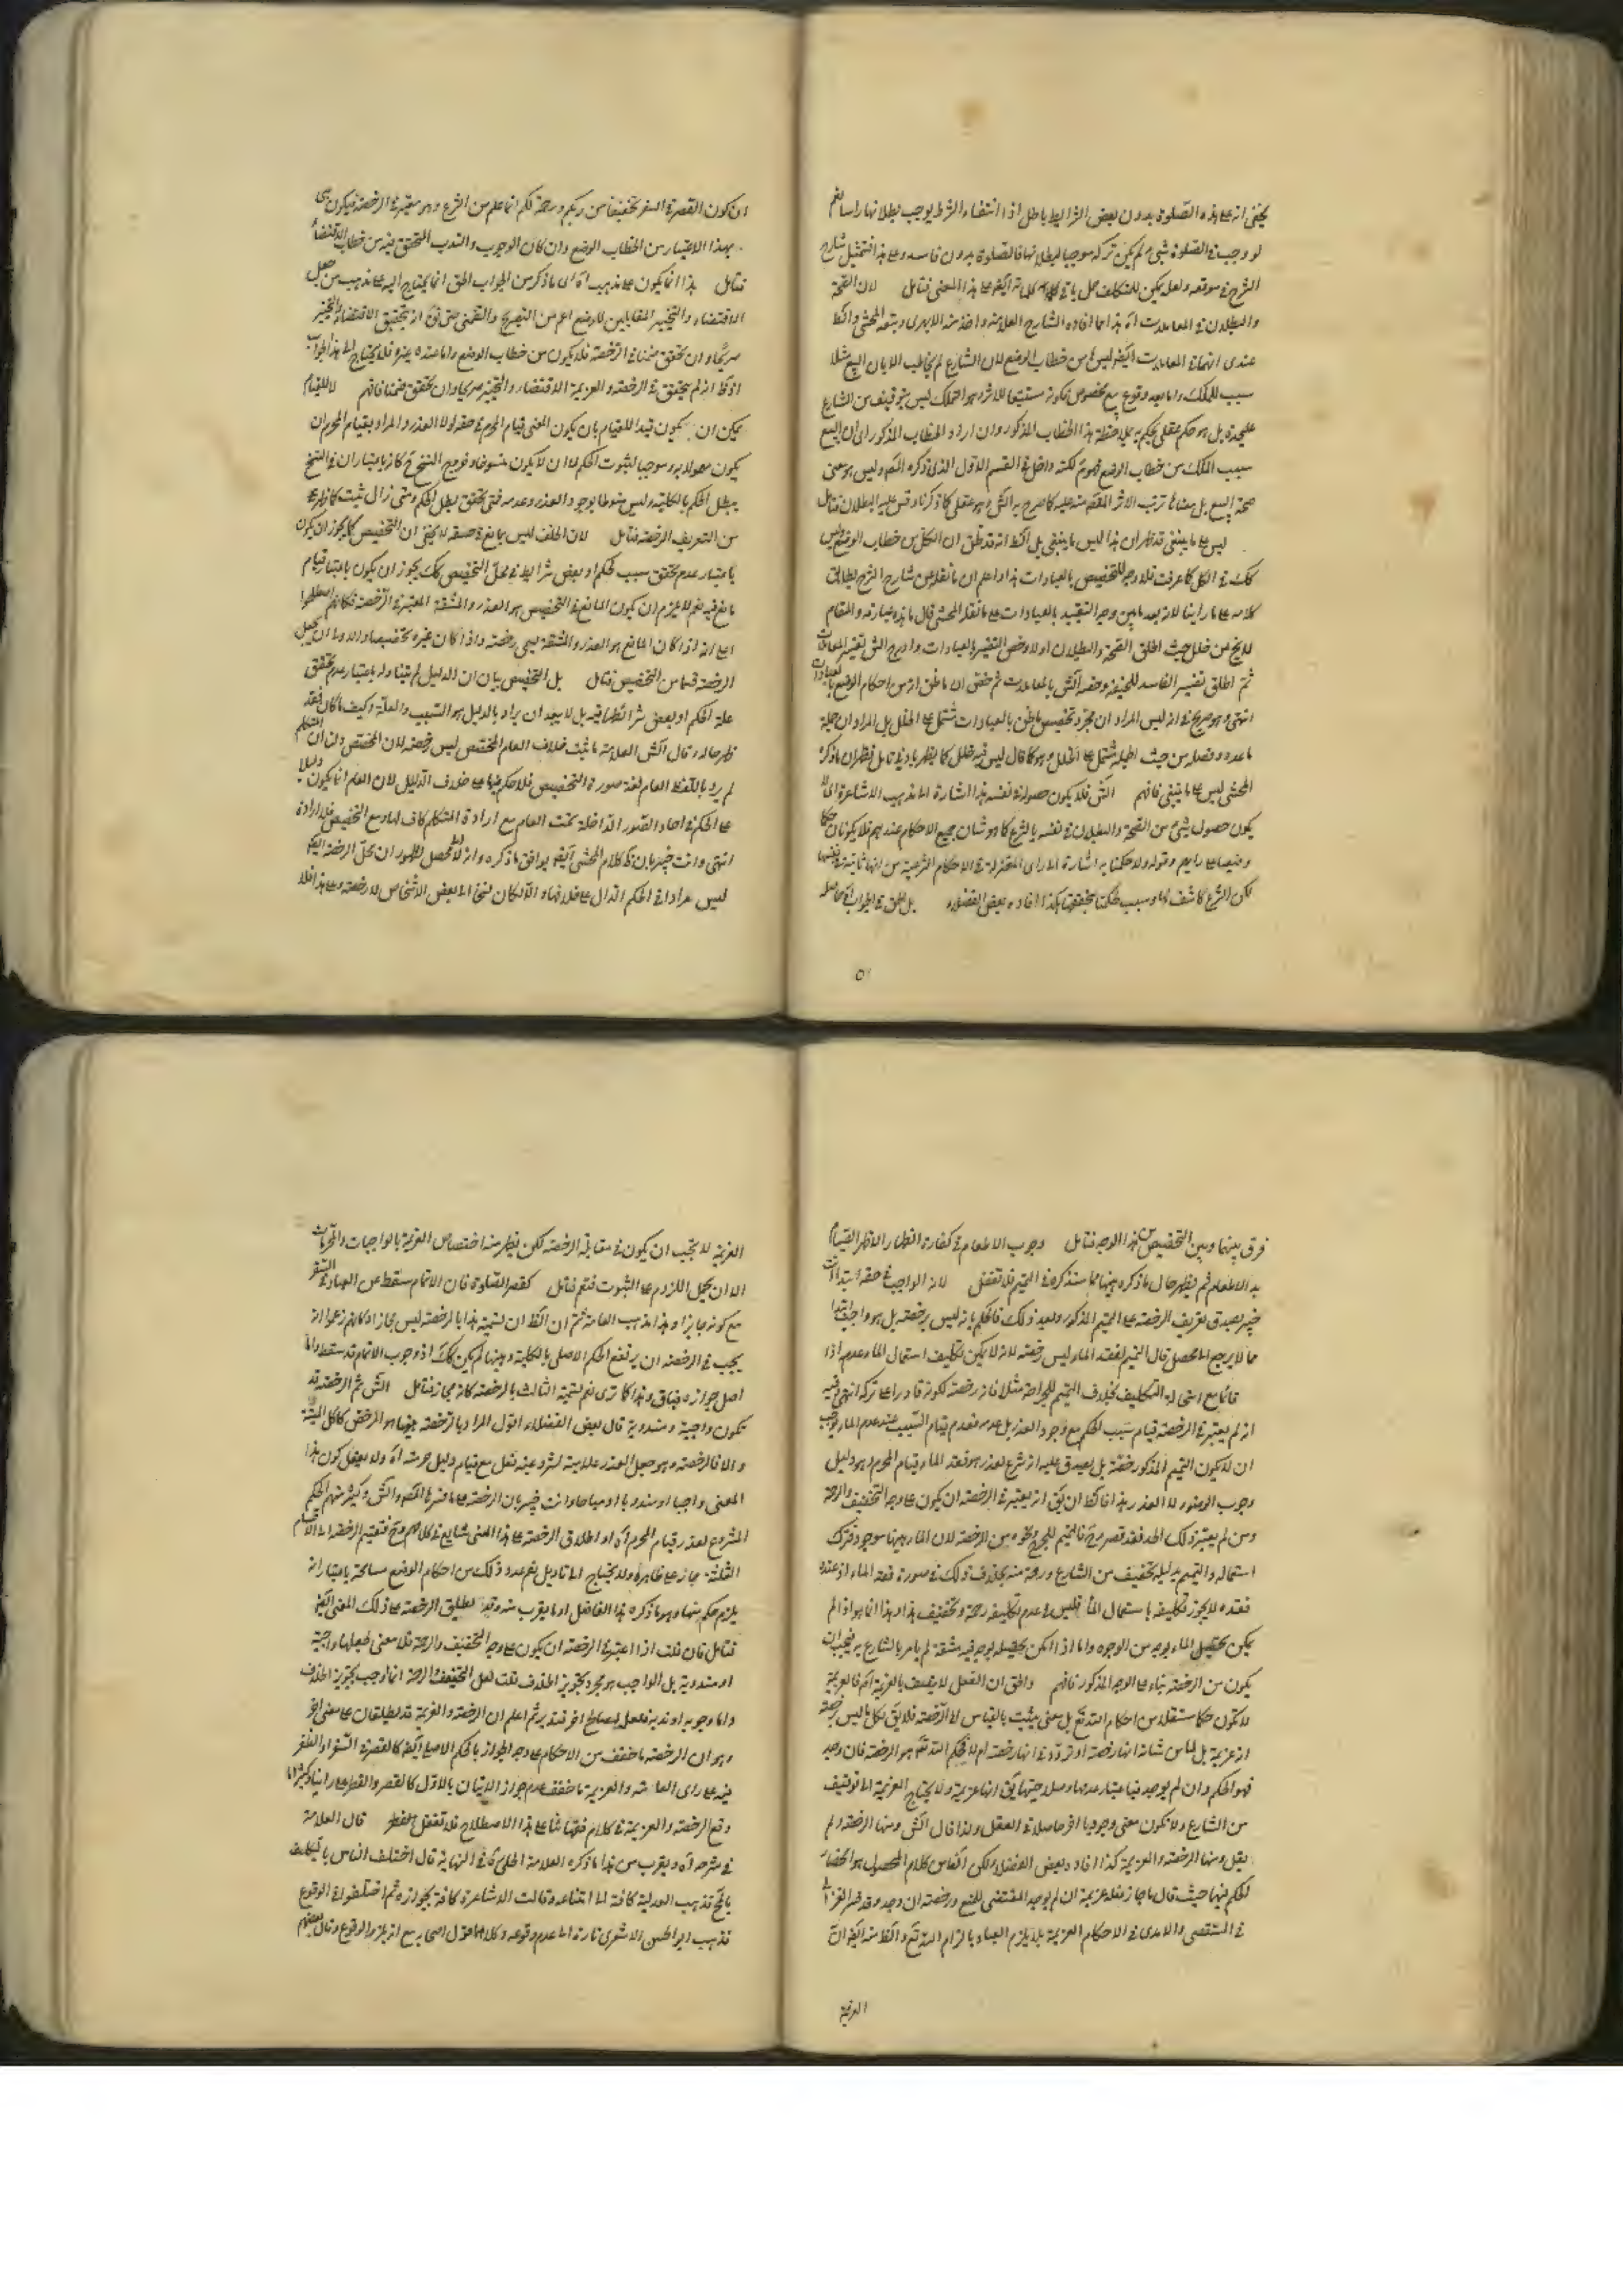 يخفى انه على هذا الصلوة بدون بعض الشرايط باطل اذا انتفاء الشرط يوجب بطلانها راسا نعم
لو وجب في الصلوة شئ ولم يكن تركه موجبا لبطلانها فالصلوة بدون فاسد وعلى هذا فتمثيل شارح
الشرح في موقعه ولعله يكن للتكلف حمل باقي كلامه ايضا على هذا المعنى فتامل لان الصحة
والبطلان في المعاملات آه هذا ما افاده الشارح العلامة واخذ منه الابهرى وتبعه المحشي والظ
عندى انهما في المعاملات ايضا ليس من خطاب الوضع لان الشارع لم يخاطب الا بان البيع مثلا
سبب للملك واما بعد وقوع بيع مخصوص فكونه مستتبعا للاثر وهو التملك ليس بتوقيف من الشارع
عليحدة بل هو حكم عقلي يحكم به بملاحظة هذا الخطاب المذكور وان اريد الخطاب المذكور اى ان البيع
سبب الملك من خطاب الوضع فهو مم لكنه داخل في القسم الاول الذى ذكره المصم وليس هو معنى
صحة البيع بل معناها ترتب الاثر المقصود منه عليه كما صرح به الش وهو عقلي كما ذكرنا وقس عليه البطلان فتامل
ليس على ما ينبغي قد ظهر ان هذا ليس ما ينبغي بل الظ انه قد ظن ان الكل من خطاب الوضع وليس
كك في الكل كما عرفت فلا وجه للتخصيص بالعبادات هذا واعلم ان ما نقله عن شارح الشرح يطابق
كلامه على ما راينا لانه بعد ما بين وجه التقييد بالعبادات على ما نقله المحشي قال ما هذه عبارته والمقام
لا يخ عن خلل حيث اطلق الصحة والبطلان اولا وخص التفسير بالعبادات وادرج الش تفسير المعاملات
ثم اطلق تفسير الفاسد للحنيفة وخصه الش بالمعاملات ثم خص ان ما ظن انه من احكام الوضع بالعبادات
انتهى وهو صريح في انه ليس المراد ان مجرد تخصيص ما ظن بالعبادات مشتمل على الخلل بل المراد ان جملة
ما عدده وفصله من حيث الجملة مشتمل على الخلل وهو كما قال ليس فيه خلل كما يظهر بادنى تامل فظهر ان ما ذكره
المحشي ليس على ما ينبغي فافهم الش فلا يكون حصوله في نفسه هذا اشارة الى مذهب الاشاعرة اى لا
يكون حصول شئ من الصحة والبطلان في نفسه بالشرع كما هو شان جميع الاحكام عندهم فلا يكونان حكما
وضعيا على رايهم وقوله ولا حكمنا به اشارة الى راى المعتزلة في الاحكام الشرعية من انها ثابتة في نفسها
لكن الشرع كاشف لها وسبب لحكمنا بتحققها هكذا افاده بعض الفضلاء بل الحق في الجواب ان حاصله
ان كون القصر في السفر تخفيفا من ربكم ورحمة لكم انما علم من الشرع وهو معتبر في الرخصة فيكون هى
بهذا الاعتبار من الخطاب الوضع وان كان الوجوب والندب المتحقق فيه من خطاب الاقتضاء
فتامل هذا انما يكون على مذهب آه اى ما ذكر من الجواب الحق انما يحتاج اليه على مذهب من جعل
الاقتضاء والتخيير المقابلين للوضع اعم من الصريح والضمنى حتى يق انه بتحقيق الاقتضاء والتخيير
صريحا وان تحقق ضمنا في الرخصة فلا يكون من خطاب الوضع واما عند غيره فلا يحتاج الى هذا الجواب
اذ ظ انه لم يتحقق في الرخصة والعزيمة الاقتضاء والتخيير صريحا وان تحقق ضمنا فافهم لا للقيام
يمكن ان يكون قيدا للقيام بان يكون المعنى قيام المحرم في حقه لولا العذر والمراد بقيام المحرم ان
يكون معمولا به وموجبا لثبوت الحكم لا ان لا يكون منسوخا وخروج النسخ ح كانه باعتبار ان في النسخ
يبطل الحكم بالكلية وليس منوطا بوجود العذر وعدمه فمتى تحقق بطل الحكم ومتى زال ثبت كما ظهر
من التعريف الرخصة فتامل لان الخلف ليس بمانع في صدقه لا يخفى ان التخصيص كما يجوز ان يكون
باعتبار عدم تحقق سبب الحكم او بعض شرايطه في محل التخصيص كك يجوز ان يكون باعتبار قيام
مانع فيه نعم لا يلزم ان يكون المانع في التخصيص هو العذر والمشقة المعتبرة في الرخصة فكانهم اصطلحوا
على انه اذا كان المانع هو العذر والمشقة يسمى رخصة واذا كان غيره تخصيصا والاولى ان يجعل
الرخصة قسما من التخصيص فتامل بل التخصيص بيان ان الدليل لم يتناوله باعتبار عدم تحقق
علة الحكم او بعض شرائطها فيه بل لا يبعد ان يراد بالدليل هو السبب والعلة وكيف ما كان فقد
ظهر حاله وقال الش العلامة ما يثبت بخلاف العام المخصص ليس رخصة لان المخصص دل ان المتكلم
لم يرد باللفظ العام لغة صورة التخصيص فلا حكم فيها على خلاف الدليل لان العام انما يكون دليلا
على الحكم في احاد الصور الداخلة تحت العام مع ارادة المتكلم كاف لها ومع التخصيص فلا ارادة
انتهى وانت خبير بان ظ كلام المحشي ايضا يوافق ما ذكره وانه لا محصل له لظهور ان محل الرخصة ايضا
ليس مرادا في الحكم الدال على خلافها والا لكان نسخا الى بعض الاشخاص لا رخصة وعلى هذا فلا
فرق بينها وبين التخصيص من هذا الوجه فتامل وجوب الاطعام في كفارة الظهار الاظهر القيام
بد الاطعام ثم يظهر حال ما ذكره هيهنا مما سنذكره في التيمم فلا تغفل لانه الواجب في حقه ابتداءً انت
خبير بصدق تعريف الرخصة على التيمم المذكور وبعد ذلك فالحكم بانه ليس برخصة بل هو واجب ابتداءً
مما لا يرجع الى محصل قال التيمم لفقد الماء ليس رخصة لانه لا يمكن تكليف استعمال الماء وعدم اذا
قائما مع استحالة التكليف بخلاف التيمم للجراحة مثلا فانه رخصة لكونه قادرا على تركه انتهى وفيه
انه لم يعتبر في الرخصة قيام سبب الحكم مع وجود العذر بل عدمه فعدم قيام السبب عند عدم الماء لا يوجب
ان لا يكون التيمم المذكور رخصة بل يصدق عليه انه شرع لعذر هو فقد الماء وقيام المحرم وهو دليل
وجوب الوضوء لولا العذر هذا فالظ ان يق انه يعتبر في الرخصة ان يكون على وجه التخفيف والرحمة
ومن لم يعتبر ذلك الحد فقد قصر وح فالتيمم للجرح ونحوه من الرخصة لان الماء هيهنا موجود فترك
استعماله والتيمم بدليله تخفيف من الشارع ورحمة منه بخلاف ذلك في صورة فقد الماء اذ عند
فقده لا يجوز تكليفه باستعمال الماء فليس في عدم تكليفه رحمة وتخفيف هذا وهذا انما هو اذا لم
يكن تحصيل الماء بوجه من الوجوه واما اذا امكن تحصيله بوجه فيه مشقة لم يامر بها الشارع به فيجب ان
يكون من الرخصة بناء على الوجه المذكور فافهم والحق ان الفعل لا يتصف بالعزيمة آه فالعزيمة
لا تكون حكما مستقلا من احكام الله تع بل معنى يثبت بالقياس الى الرخصة فلا يق لكل ما ليس رخصة
انه عزيمة بل لما من شانه انها رخصة او تردد في انها رخصة ام لا فحكم الله تع هو الرخصة فان وجد
فهو الحكم وان لم يوجد فباعتبار عدمها وصلاحيتها يق انها عزيمة ولا يحتاج العزيمة الى توقيف
من الشارع ولا يكون معنى وجوديا اخر حاصلا في العقل ولذا قال الش ومنها الرخصة ولم
يقل ومنها الرخصة والعزيمة كذا افاده بعض الفضلاء ولكن اتفاق كلام المحصول هو انحصار
الحكم فيهما حيث قال ما جاز فعله عزيمة ان لم يوجد المقتضى للمنع ورخصة ان وجد وقد فسر الغزالى
في المستصفى والامدى في الاحكام العزيمة بما يلزم العباد بالزام الله تع والظ منه ايضا ان
العزيمة
العزيمة لا يجب ان يكون في مقابلة الرخصة لكن يظهر منه اختصاص العزيمة بالواجبات والمحرمات
الا ان يحمل اللزوم على الثبوت فتم فتامل كقصر الصلوة فان الاتمام سقط عن العباد في السفر
مع كونه جايزا وهذا مذهب العامة ثم ان الظ ان تسمية هذا بالرخصة ليس مجازا وكانهم زعموا انه
يجب في الرخصة ان يرتفع الحكم الاصلي بالكلية وهيهنا لم يكن كك اذ وجوب الاتمام قد سقط واما
اصل جوازه فباق وهذا كما ترى نعم تسمية الثالث بالرخصة كانه مجاز فتامل الش ثم الرخصة قد
تكون واجبة ومندوبة قال بعض الفضلاء اقول المراد بالرخصة هيهنا هو المرخص كاكل الميتة
والا فالرخصة وهو جعل العذر علامة لشرعية فعل مع قيام دليل حرمته آه ولا يعقل كون هذا
المعنى واجبا او مندوبا او مباحا وانت خبير بان الرخصة على ما فسرها المصم والش وكثير منهم الحكم
المشروع لعذر قيام المحرم آه او اطلاق الرخصة على هذا المعنى شايع في كلامهم وح فتقسيم الرخصة الى الاقسام
الثلثة مجاز على ظاهره ولا يحتاج الى تاويل نعم عدد ذلك من احكام الوضع مسامحة باعتبار انه
يلزم حكم منها وهو ما ذكره هذا الفاضل او ما يقرب منه وقد يطلق الرخصة على ذلك المعنى ايضا
فتامل فان قلت اذا اعتبر في الرخصة ان يكون على وجه التخفيف والرحمة فلا معنى لجعلها واجبة
او مندوبة بل الواجب هو مجرد تجويز الخلاف قلت لعل التخفيف والرحمة انما وجب تجويز الخلاف
واما وجوبه او ندبه فلعل لمصالح اخر فتدبر ثم اعلم ان الرخصة والعزيمة قد يطلقان على معنى اخر
وهو ان الرخصة ما خفف من الاحكام على وجه الجواز بالحكم الاصلي ايضا كالقصر في السفر والفطر
فيه على راى العامة والعزيمة ما خفف مع عدم جواز الاتيان بالاول كالقصر والفطر على راينا وكثيرا ما
وقع الرخصة والعزيمة في كلام فقهائنا على هذا الاصطلاح فلا تغفل الفطر قال العلامة
في شرحه آه ويقرب من هذا ما ذكره العلامة الحلي قال في النهاية قال اختلف الناس بالتكليف
بالمح فذهب العدلية كافة الى امتناعه وقالت الاشاعرة كافة بجوازه ثم اختلفوا في الوقوع
فذهب ابو الحسن الاشعرى تارة الى عدم وقوعه وكلاهما قول اصحابه مع انه يلزمه الوقوع وقال بعضهم